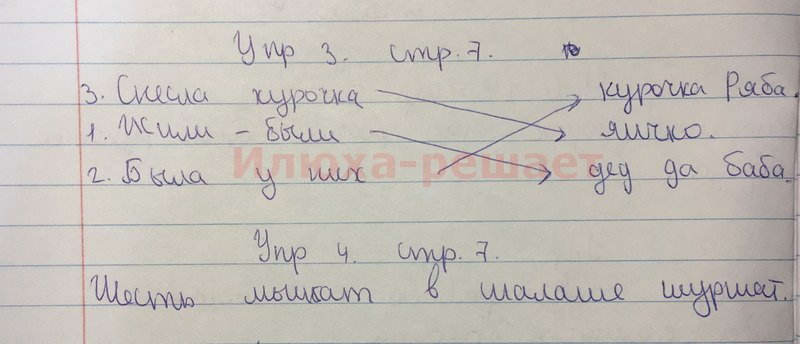 Упр 3. стр. 7.
3. Снесла курочка курочка Ряба.
1. Жили - были яичко.
2. Была у них дед да баба.
Илюха-решает
Упр 4. стр. 7.
Шесть мышат в шалаше шуршат.